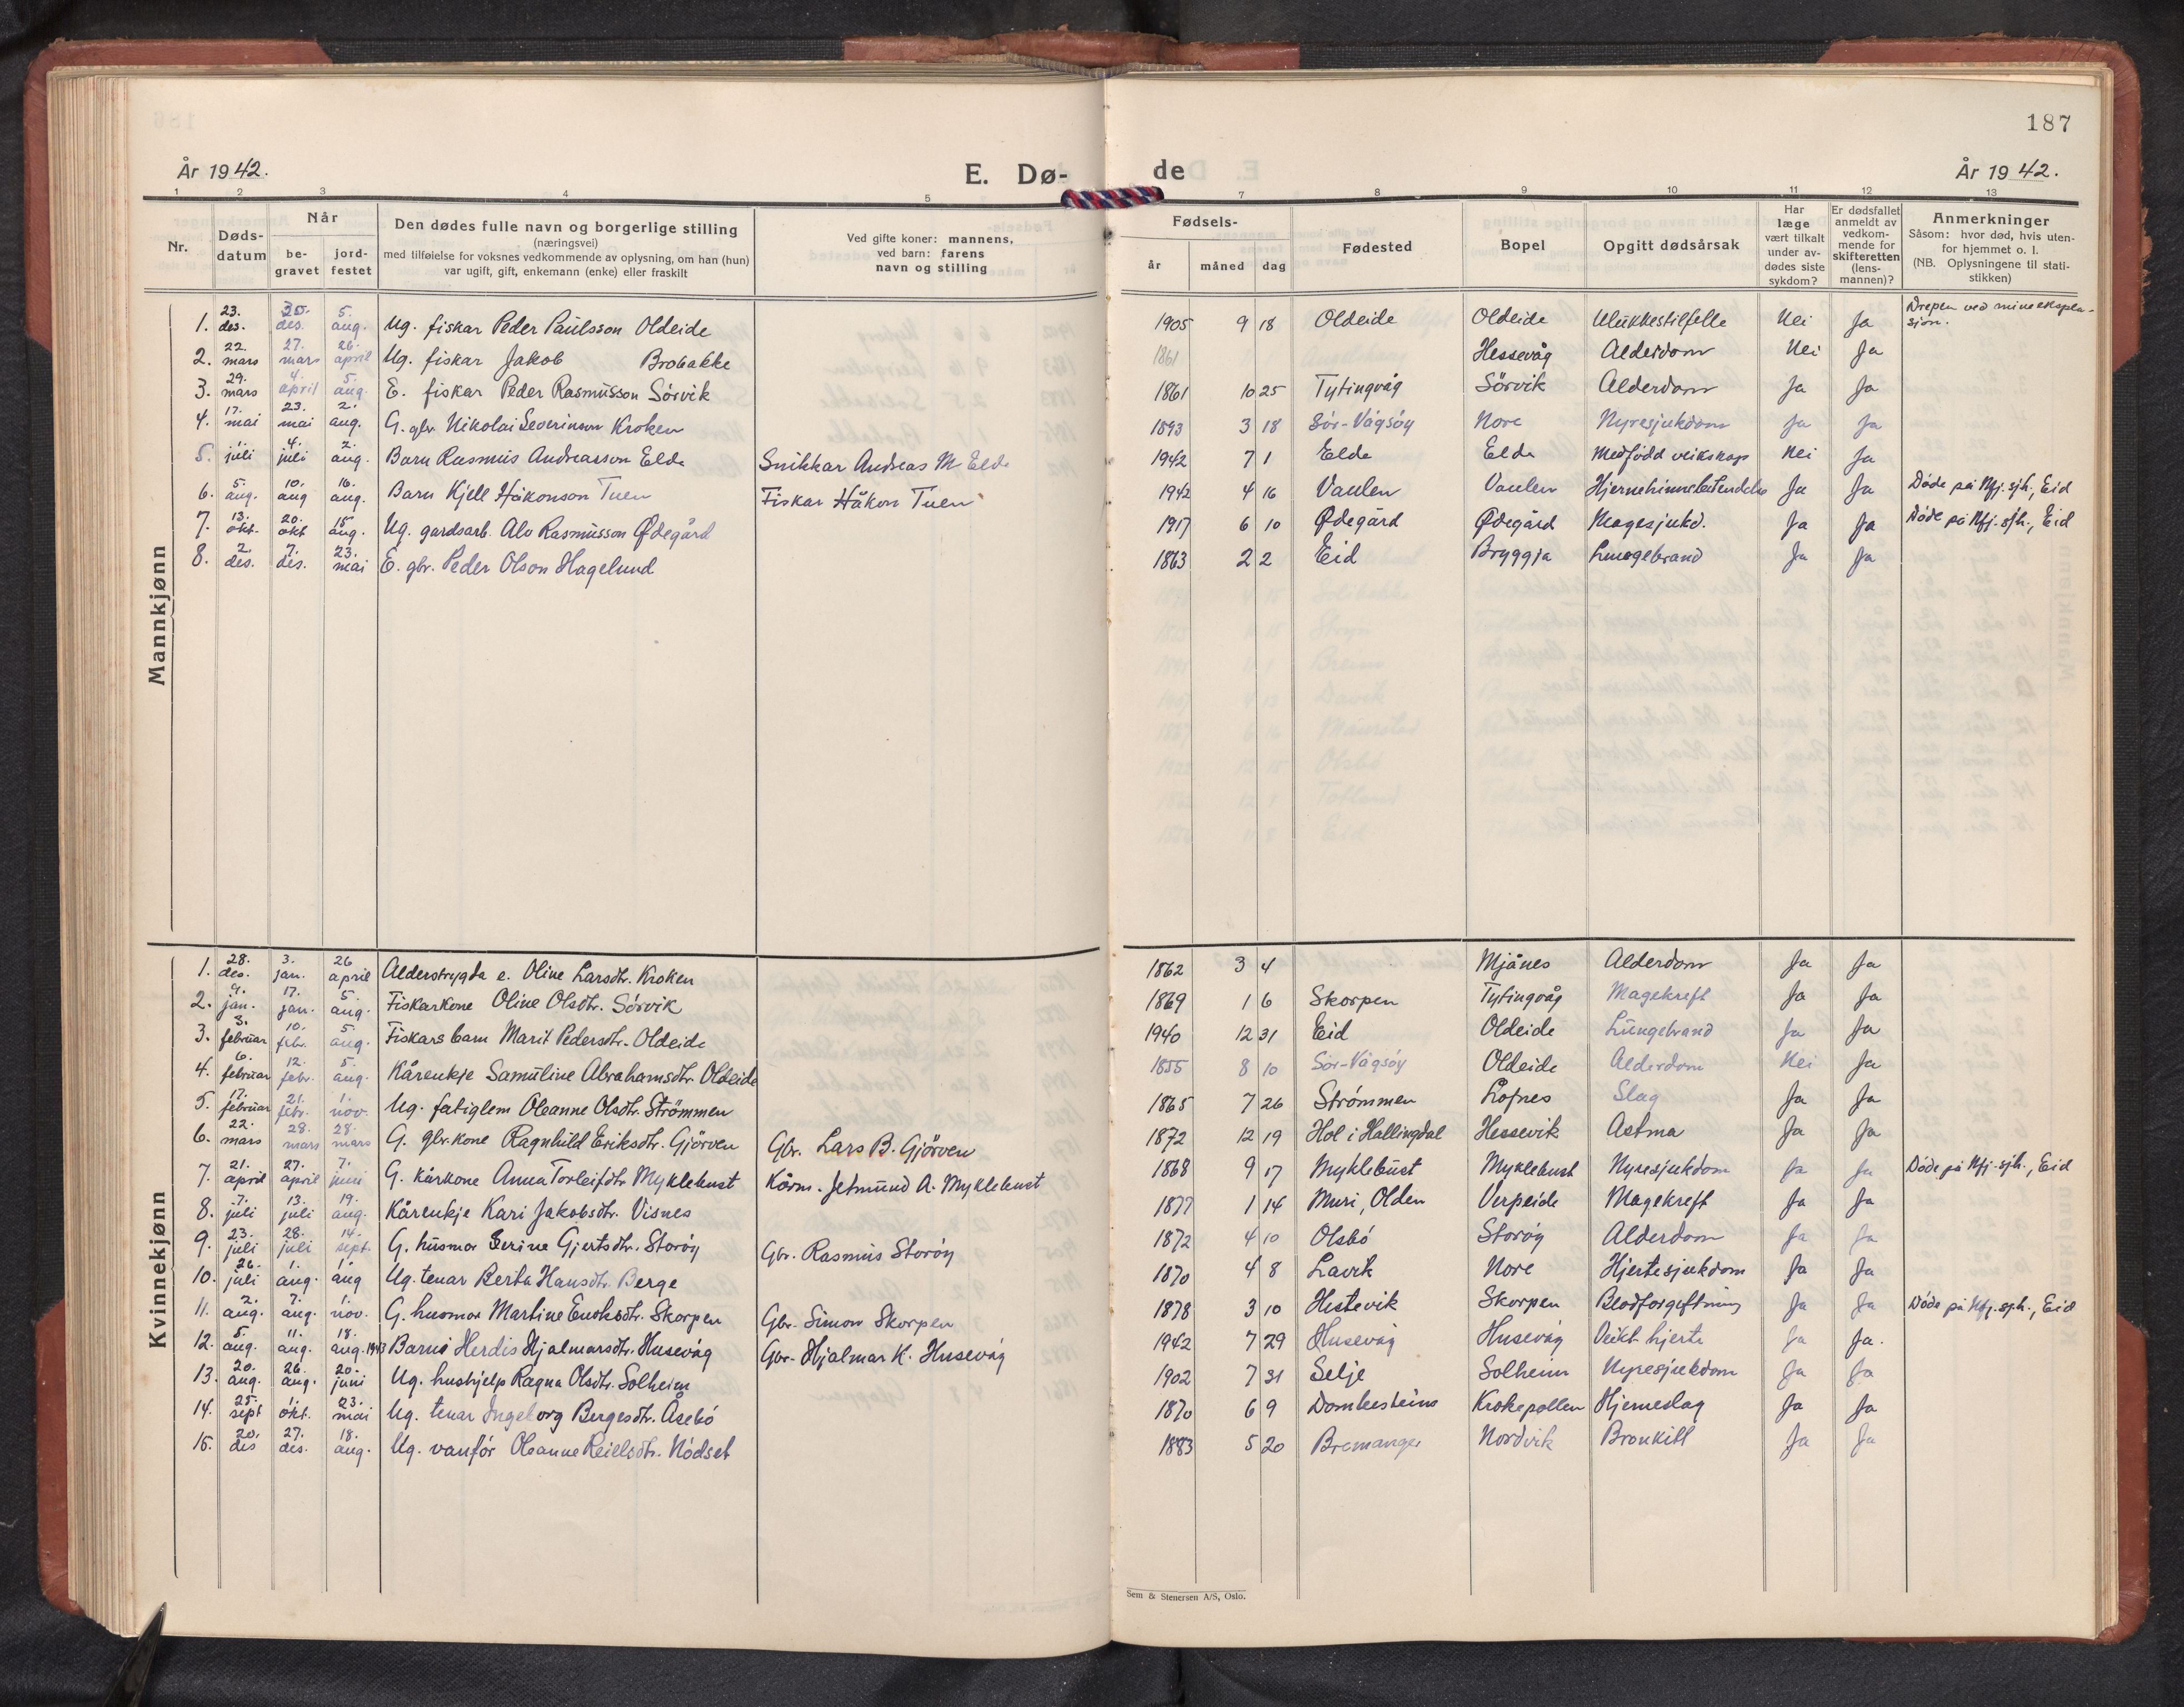 187
År 1942.
E. Dø-
de
År 1942.
1 2 3 4 5
7 8 9 10 11 12 13
Nr.
Døds-
datum
Når
be-
gravet
jord-
festet
Den dødes fulle navn og borgerlige stilling
(næringsvei)
med tilføielse for voksnes vedkommende av oplysning, om han (hun)
var ugift, gift, enkemann (enke) eller fraskilt
Ved gifte koner: mannens,
ved barn: farens
navn og stilling
Fødsels-
år måned dag
Fødested
Bopel
Opgitt dødsårsak
Har
læge
vært tilkalt
under av-
dødes siste
sykdom?
Er dødsfallet
anmeldt av
vedkom-
mende for
skifteretten
(lens-
mannen)?
Anmerkninger
Såsom: hvor død, hvis uten-
for hjemmet o. l.
(NB. Oplysningene til stati-
stikken)
Mannkjønn
1. 23. des. des. 5. aug. Ug. fiskar Peder Paulsson Oldeide 1905 9 18 Oldeide Oldeide Ulukkestilfelle Nei Ja Drepen ved mineeksplo-
sjon.
2. 22. mars 27. mars 26. april Ug. fiskar Jakob Brobakke 1861 Hessevåg Alderdom Nei Ja
3. 29. mars 4. april 5. aug. E. fiskar Peder Rasmusson Sørvik 1861 10 25 Tytingvåg Sørvik Alderdom Ja Ja
4. 17. mai 23. mai 2. aug. G. gbr. Nikolai Severinson Kroken 1893 3 18 Sør-Vågsøy Nore Nyresjukdom Ja Ja
5. 1. juli 4. juli 2. aug. Barn Rasmus Andreasson Elde Snikkar Andreas M Elde 1942 7 1 Elde Elde Medfødd veikskap Nei Ja
6. 5. aug. 10. aug 16. aug. Barn Kjell Håkonson Tuen Fiskar Håkon Tuen 1942 4 16 Vaulen Vaulen Hjernehinnebetendelse Ja Ja Døde på Nfj. sjh., Eid
7. 13. okt. 20. okt 15. aug. Ug. gardsarb. Alv Rasmusson Ødegård 1917 6 10 Ødegård Ødegård Magesjukd. Ja Ja Døde på Nfj. sjh., Eid
8. 2. des. 7. des. 23. mai E. gbr. Peder Olson Hagelund 1863 2 2 Eid Bryggja Lungebrand Ja Ja
Kvinnekjønn
1. 28. des. 3. jan. 26 april Alderstrygda e. Oline Larsdtr. Kroken 1862 3 4 Mjånes Alderdom Ja Ja
2. 9. jan. 17. jan. 5. aug. Fiskarkone Oline Olsdtr. Sørvik 1869 1 6 Skorpen Tytingvåg Magekreft Ja Ja
3. 3. februar 10. febr. 5. aug. Fiskars barn Marit Pedersdtr. Oldeide 1940 12 31 Eid Oldeide Lungebrand Ja Ja
4. 6. februar 12. febr. 5. aug. Kårenkje Samuline Abrahamsdtr. Oldeide 1855 8 10 Sør-Vågsøy Oldeide Alderdom Nei Ja
5. 17. februar 21. febr. 1. nov. Ug. fatiglem Oleanne Olsdtr. Strømmen 1865 7 26 Strømmen Løfnes Slag Ja Ja
6. 22. mars 28. mars 28. mars G. gbr.kone Ragnhild Eriksdtr. Gjörven Gbr. Lars B. Gjörven 1872 12 19 Hol i Hallingdal Hessevik Astma Ja Ja
7. 21. april 27. april 7. juni G. kårkone Anna Torleifdtr Myklebust Kårm. Jetmund A. Myklebust 1868 9 17 Myklebust Myklebust Nyresjukdom Ja Ja Døde på Nfj. sjh., Eid
8. 7. juli 13. juli 19. aug. Kårenkje Kari Jakobsdtr. Visnes 1877 1 14 Muri, Olden Verpeide Magekreft Ja Ja
9. 23. juli 28. juli 14. sept. G. husmor Serine Gjertsdtr. Storöy Gbr. Rasmus Storöy 1872 4 10 Olsbö Storöy Alderdom Ja Ja
10. 26. juli 1. aug. 1. aug Ug. tenar Berta Hansdtr. Berge 1870 4 8 Lavik Nore Hjertesjukdom Ja Ja
11. 2. aug. 7. aug. 1. nov. G. husmor Martine Enoksdtr. Skorpen Gbr. Simon Skorpen 1878 3 10 Hestevik Skorpen Blodforgiftning Ja Ja Døde på Nfj. sjh., Eid
12. 5. aug. 11. aug. 18. aug. 1943 Barnet Herdis Hjalmarsdtr. Husevåg Gbr. Hjalmar K. Husevåg 1942 7 29 Husevåg Husevåg Veikt hjerte Ja Ja.
13. 20. aug. 26. aug. 20. juni Ug. hushjelp Ragna Olsdtr. Solheim 1902 7 31 Selje Solheim Nyresjukdom Ja Ja
14. 25. sept 1. okt. 23. mai Ug. tenar Ingeborg Bergesdtr. Åsebö 1870 6 9 Dombesteins Krokepollen Hjerneslag Ja Ja
15. 20. des 27. des. 18. aug. Ug. vanför Oleanne Reielsdtr. Nödset 1883 5 20 Bremanger Nordvik Bronkitt Ja Ja
Sem & Stenersen A/S, Oslo.